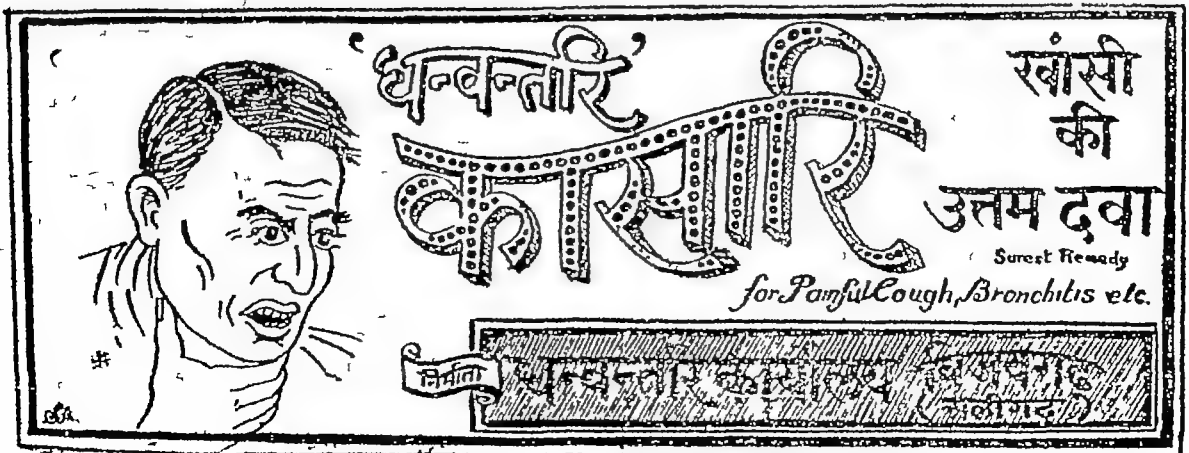 'धन्वन्तरि'
कासारि
खांसी
की
उत्तम दवा
Surest Remedy
for Painful Cough, Bronchitis etc.
निर्माता
धन्वन्तरि कार्यालय